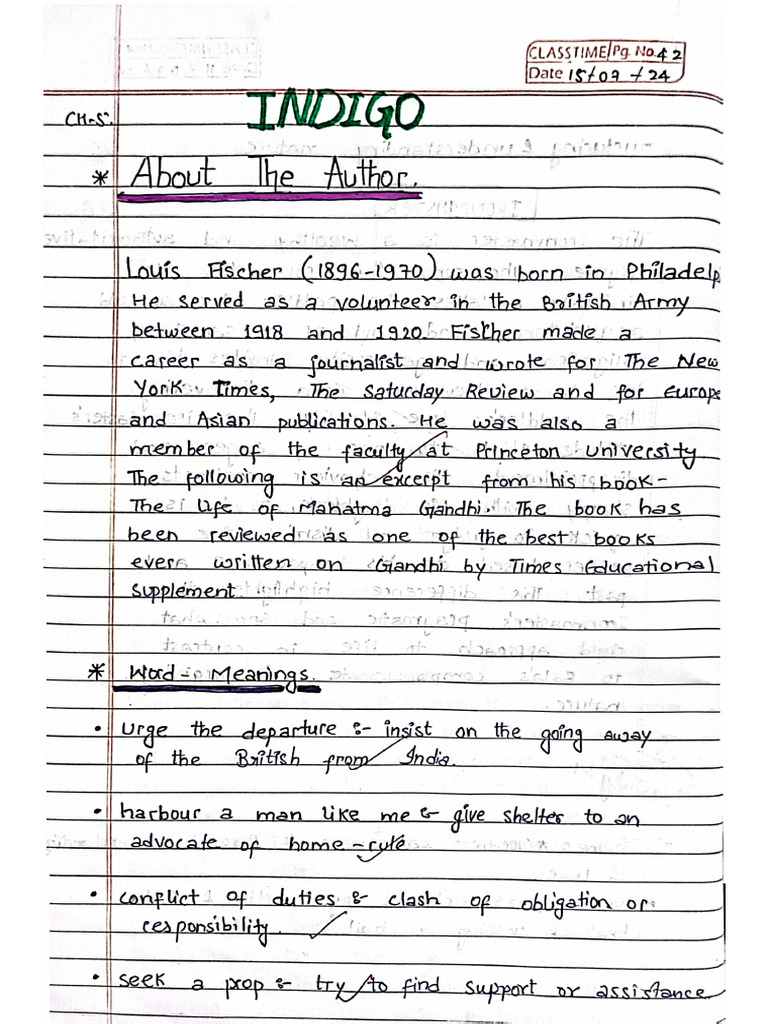 CLASSTIME Pg. No. 42
Date 15/07/24
CH-5.
INDIGO
* About The Author.
Louis Fischer (1896-1970) was born in Philadelp
He served as a volunteer in the British Army
between 1918 and 1920. Fischer made a
career as a journalist and wrote for The New
York Times, The Saturday Review and for Europe
and Asian publications. He was also a
member of the faculty at Princeton University
The following is an excerpt from his book-
The Life of Mahatma Gandhi. The book has
been reviewed as one of the best books
ever written on Gandhi by Times Educational
Supplement
* Word-Meanings.
• urge the departure :- insist on the going away
of the British from India.
• harbour a man like me :- give shelter to an
advocate of home-rule
• conflict of duties :- clash of obligation or
responsibility.
• seek a prop :- try to find support or assistance